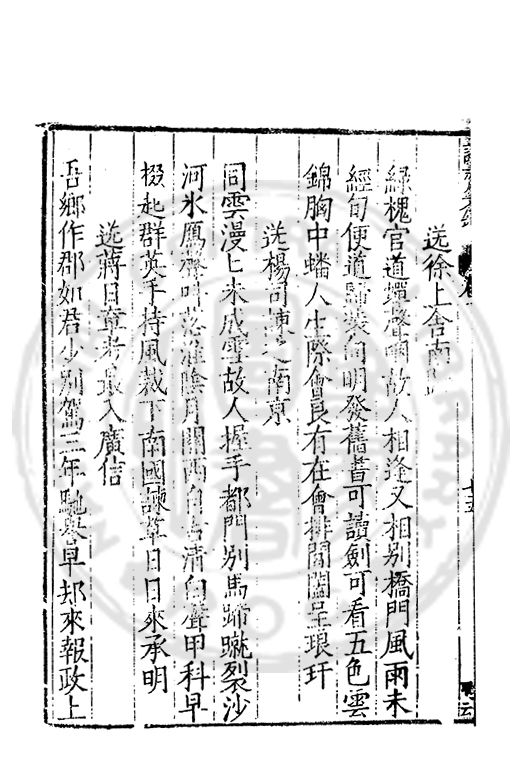 送徐上舍南
綠槐官道蟬聲咽故人相逢又相別橋門風雨未
經旬便道歸裝向明發舊書可讀劍可看五色雲
錦胸中蟠人生際會良有在會排閶闔呈琅玕
送楊司諫之南京
同雲漫匕未成雪故人握手都門別馬蹄蹴裂沙
河氷鴈聲叫落淮隂月關西自古清白聲甲科早
掇起群英手持風裁下南國諫草日日來承明
送蔣日章考最入廣信
吾鄉作郡如君少別駕三年馳譽早却來報政上
七五